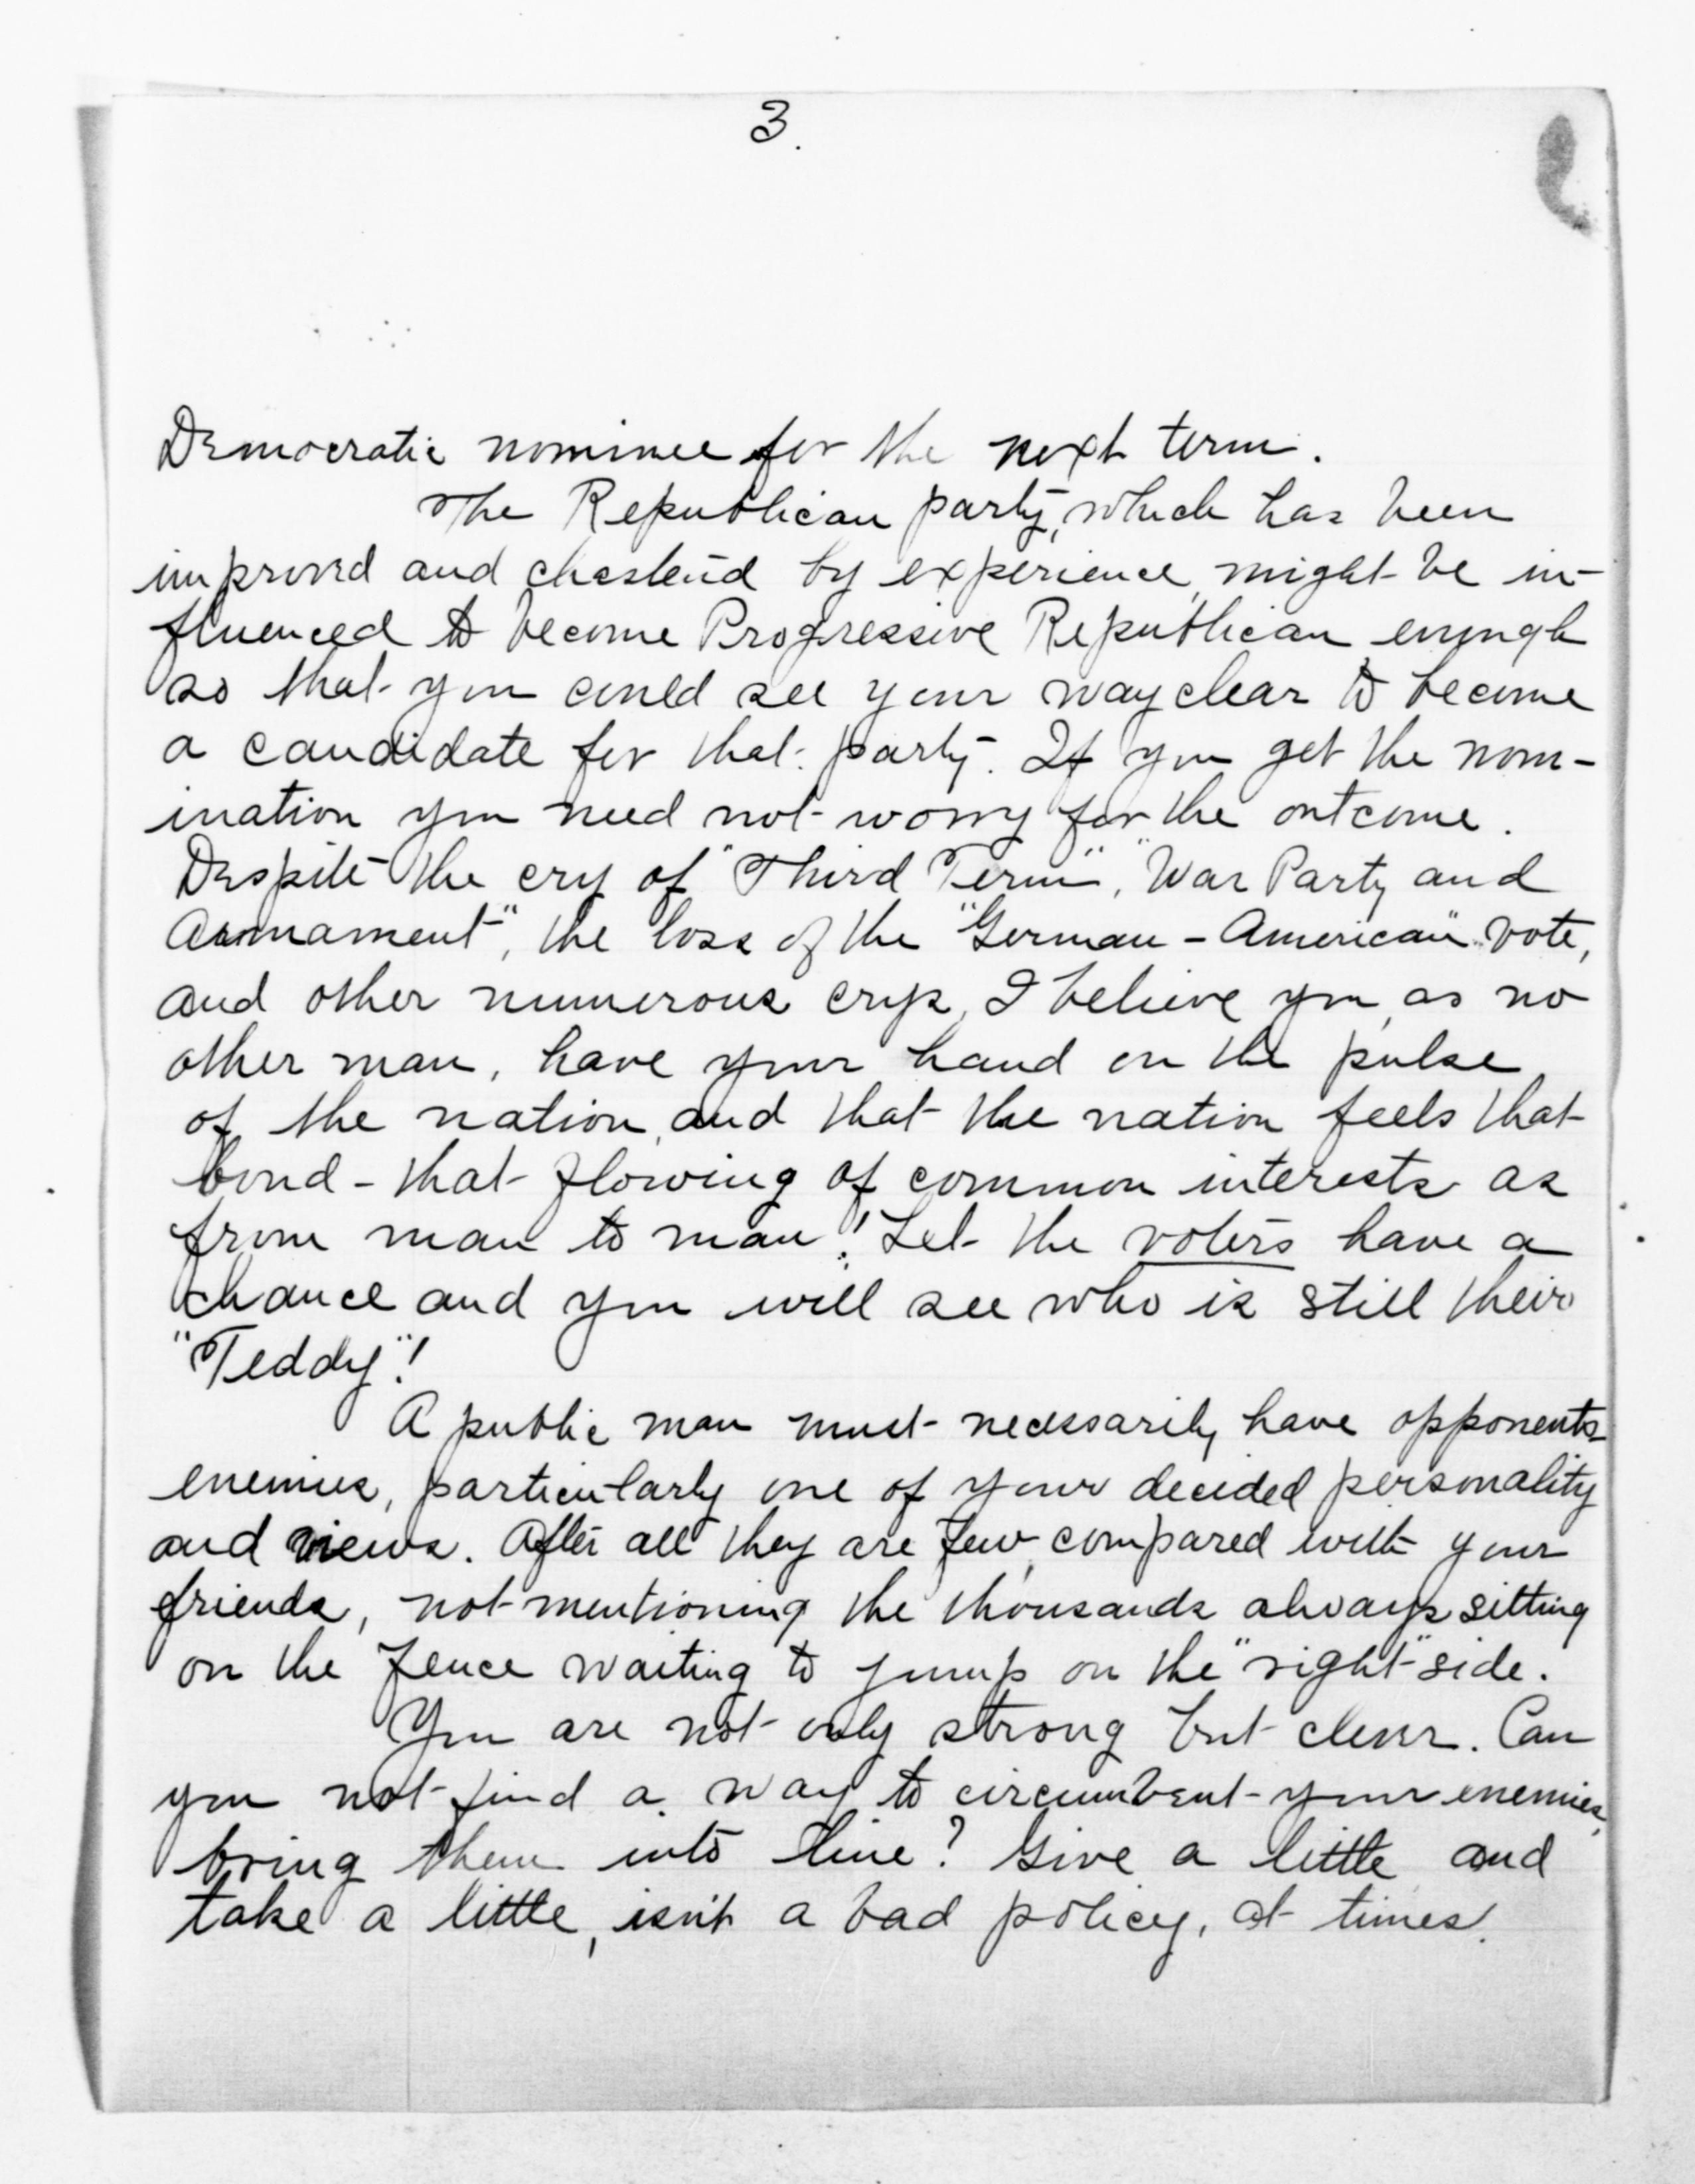 3.
Democratic nominee for the next term.
The Republican party, which has been
improved and chastend by experience, might be in-
fluenced to become Progressive Republican enough
so that you could see your way clear to become
a candidate for that party. If you get the nom-
ination you need not worry for the outcome.
Despite the cry of "Third Term", "War Party and
Armament", the loss of the "German-American" vote,
and other numerous crys, I believe you, as no
other man, have your hand on the pulse
of the nation, and that the nation feels that
bond - that flowing of common interests as
from man to man! Let the voters have a
chance and you will see who is still their
"Teddy"!
A public man must necessarily have opponents-
enemies, particularly one of your decided personality
and views. After all they are few, compared with your
friends, not mentioning the thousands always sitting
on the fence waiting to jump on the "right" side.
You are not only strong but clever. Can
you not find a way to circumvent your enemies,
bring them into line? Give a little and
take a little, isn't a bad policy, at times.